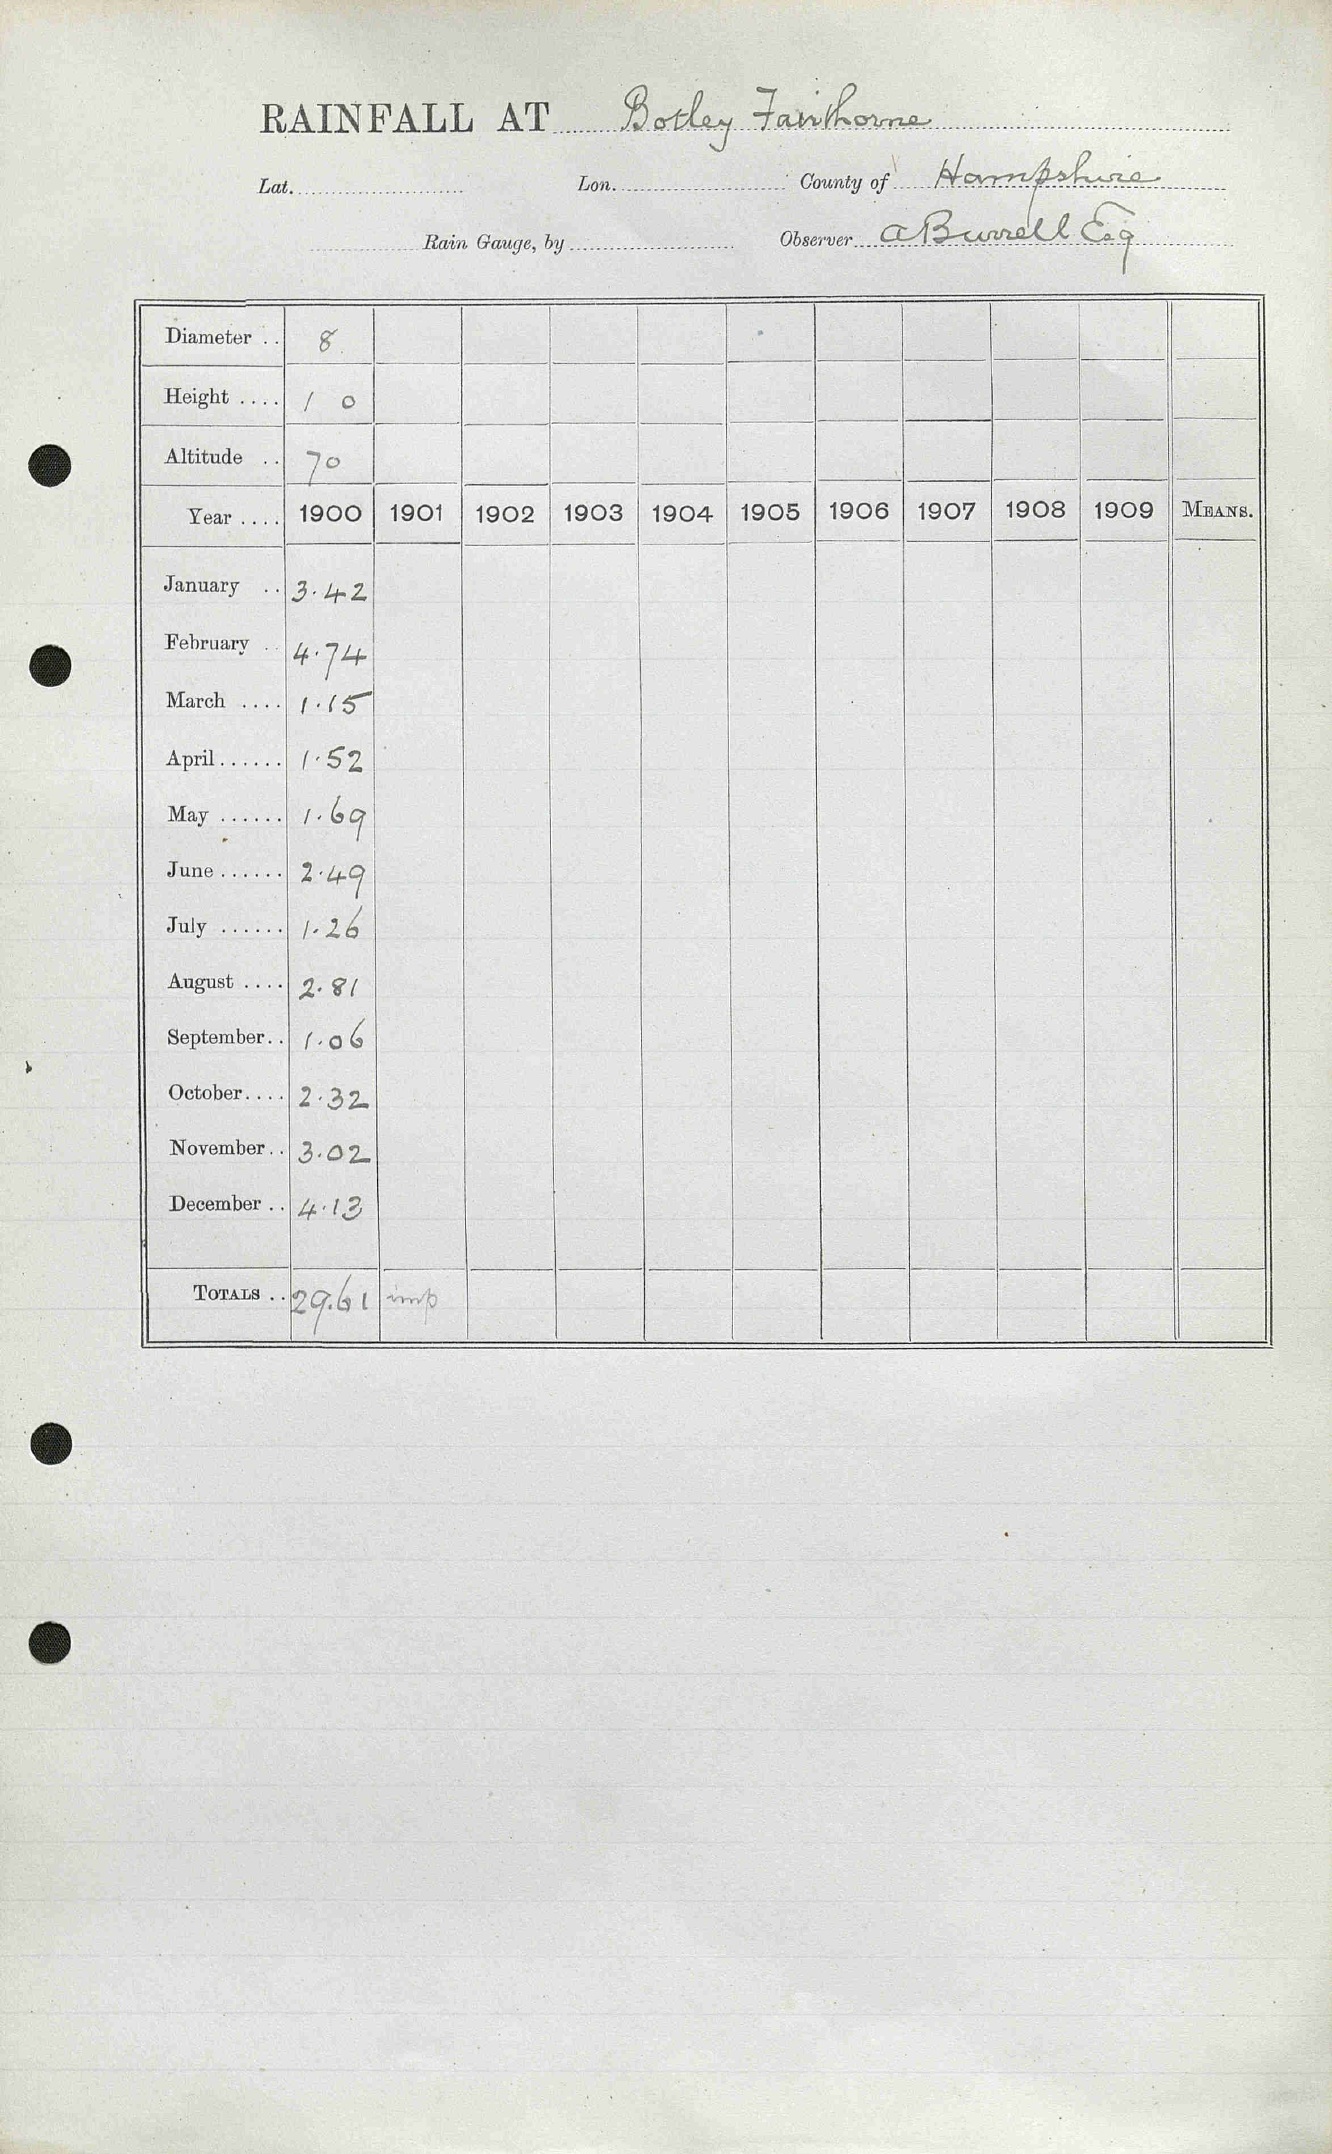 RAINFALL AT Botley Fairthorne
Lat. Lon. County of Hampshire
Rain Gauge, by Observer A Burrell Esq
Diameter .. 8
Height .... 1 0
Altitude .. 70
Year .... 1900 1901 1902 1903 1904 1905 1906 1907 1908 1909 MEANS.
January .. 3.42
February .. 4.74
March .... 1.15
April...... 1.52
May ...... 1.69
June...... 2.49
July ...... 1.26
August .... 2.81
September.. 1.06
October.... 2.32
November.. 3.02
December .. 4.13
TOTALS .. 29.61 imp